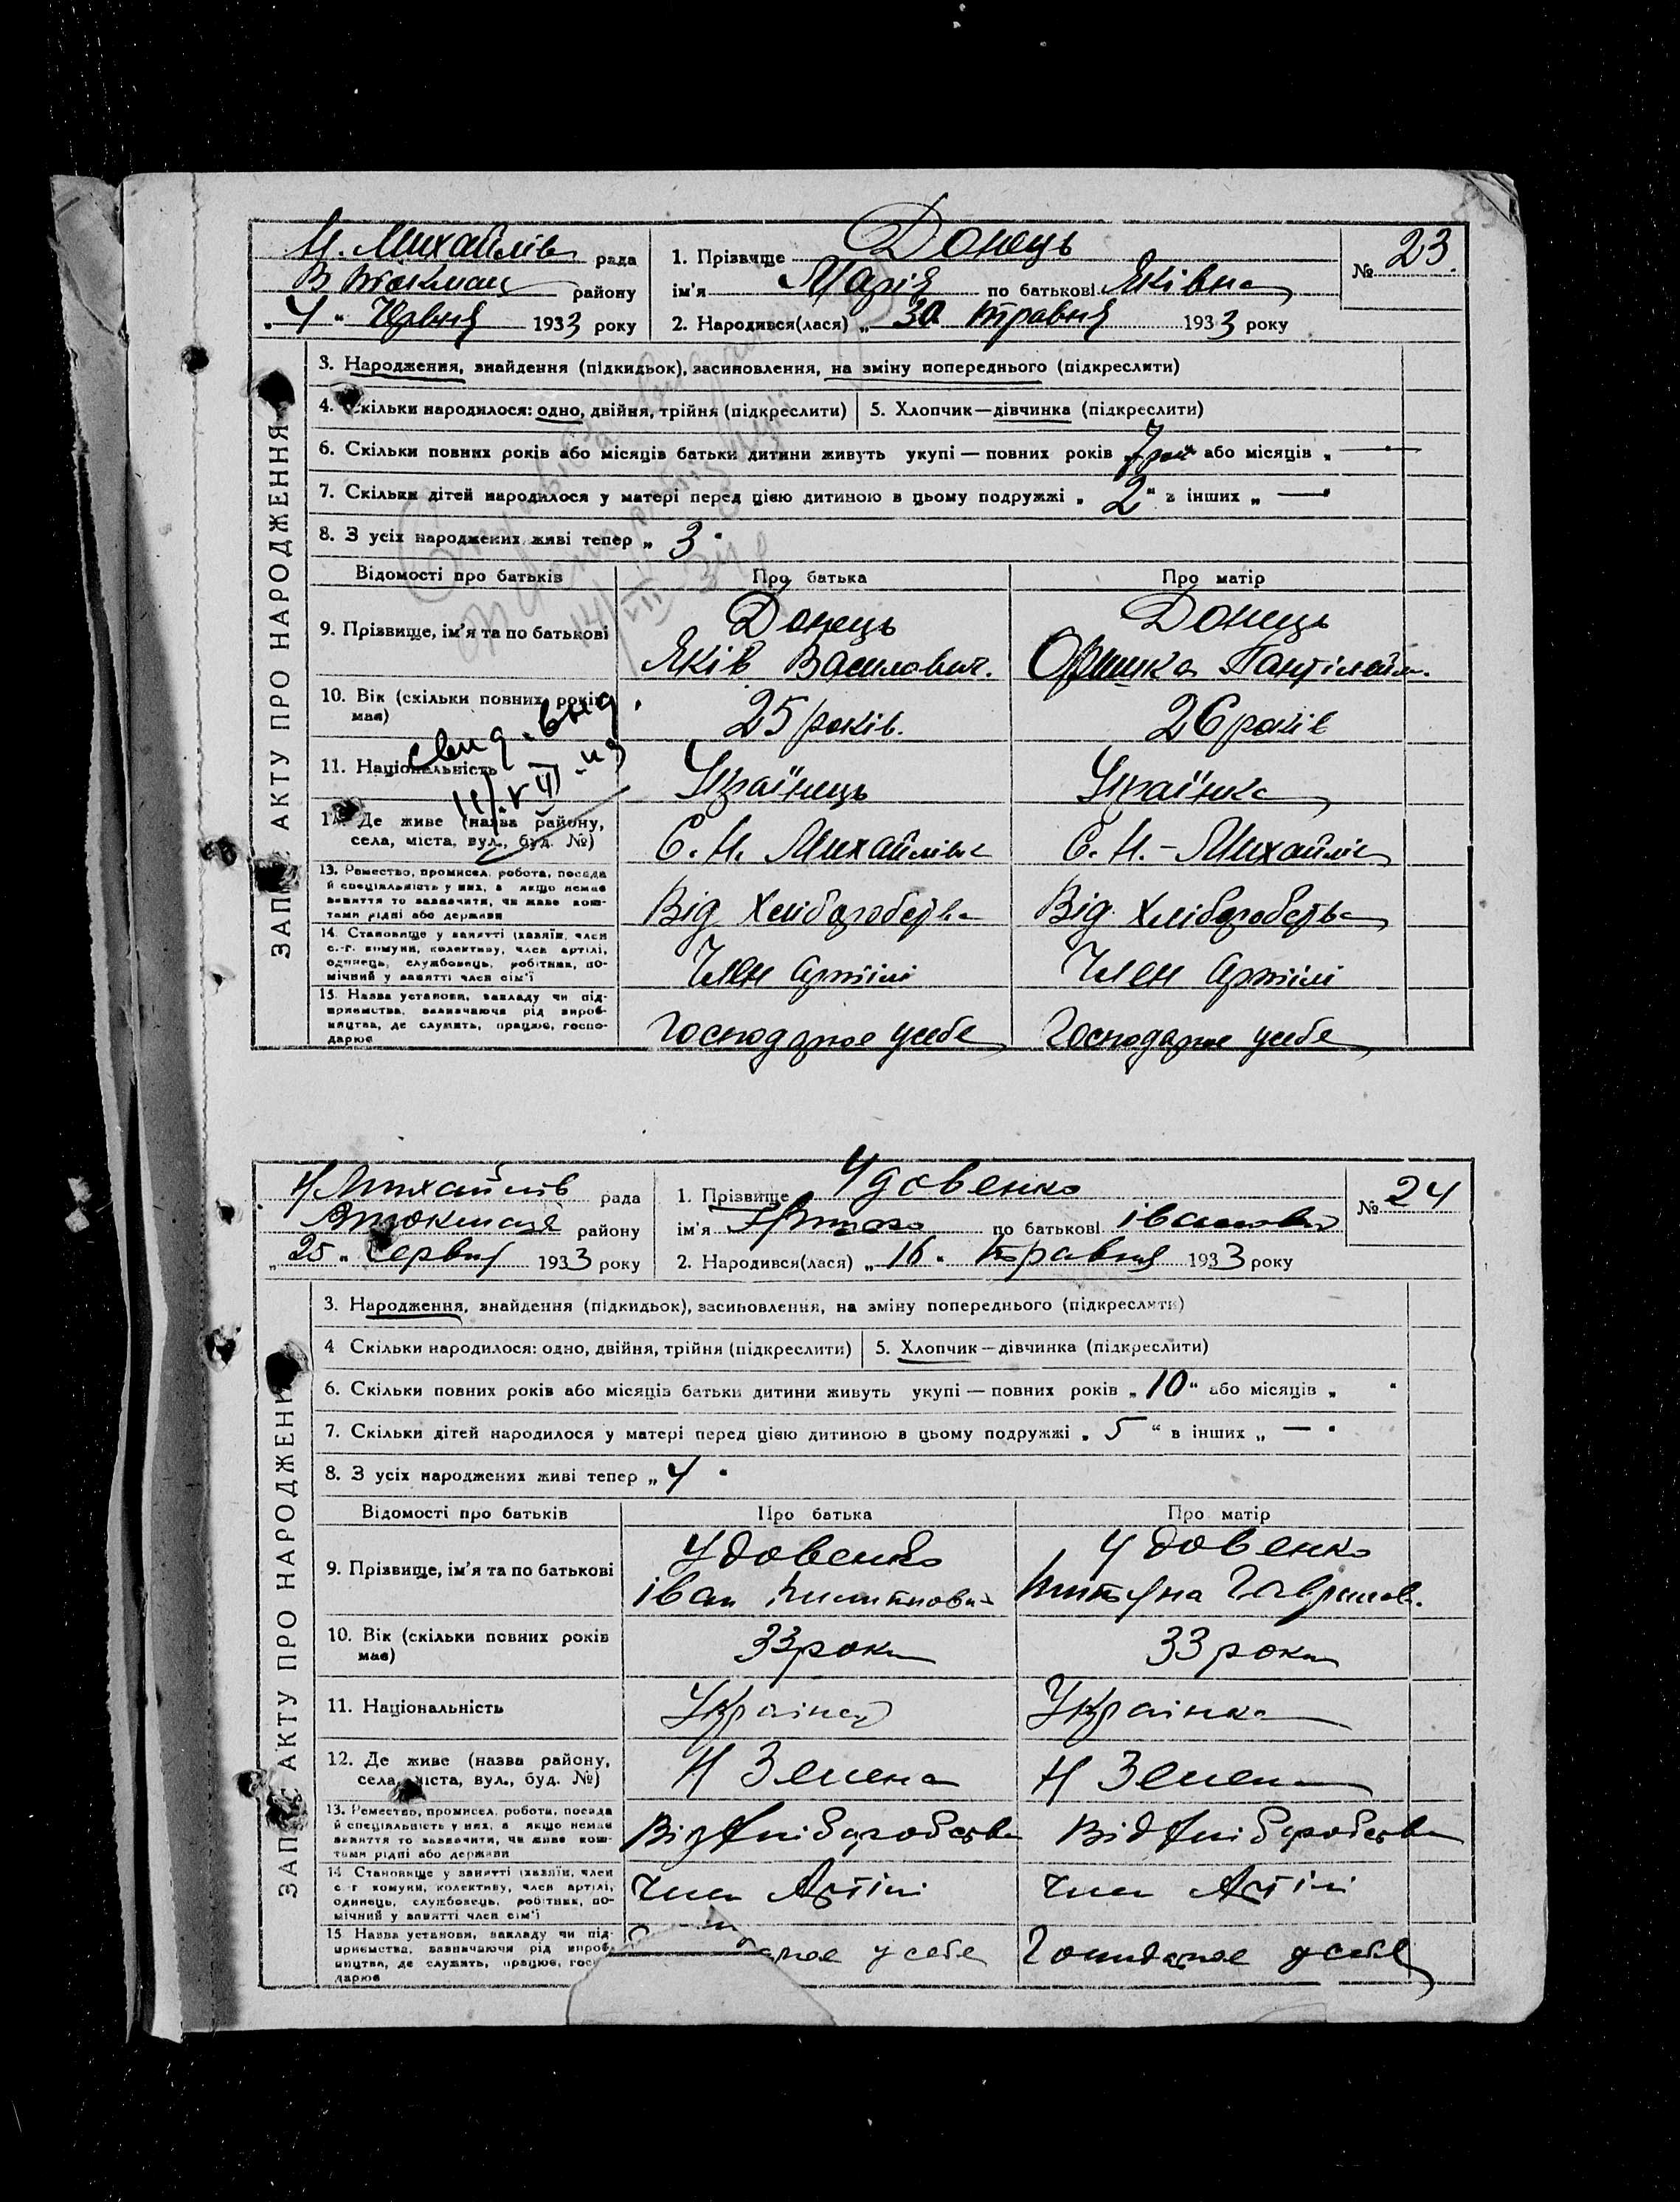 Н. Михайлів рада
В Токмац району
„4“ Червня 1933 року
1. Прізвище Донець
ім'я Марія по батькові Яківна
2. Народився(лася) „30 травня 1933 року
№ 23
ЗАПИС АКТУ ПРО НАРОДЖЕННЯ
3. Народження, знайдення (підкидьок), засиновлення, на зміну попереднього (підкреслити)
4. Скільки народилося: одно, двійня, трійня (підкреслити) 5. Хлопчик—дівчинка (підкреслити)
6. Скільки повних років або місяців батьки дитини живуть укупі — повних років „7 або місяців „ —
7. Скільки дітей народилося у матері перед цією дитиною в цьому подружжі „ 2“ з інших „ —“
8. З усіх народжених живі тепер „ 3 “
Відомості про батьків Про батька Про матір
9. Прізвище, ім'я та по батькові Донець Донець
Яків Василович. Оришка
10. Вік (скільки повних років
має) 25 років. 26 років
свид. выд.
11. Національність Українець Українка
12. Де живе (назва району,
села, міста, вул., буд. №) С. Н. Михайлівк С. Н.-Михайлів
13. Ремество, промисел, робота, посада
й спеціяльність у них, а якщо немає
заняття то зазначити, чи живе кош-
тами рідні або держави Від Хліборобства Від Хліборобства
14. Становище у занятті (хазяїн, член
с.-г. комуни, колективу, член артілі,
одинець, службовець, робітник, по-
мічний у занятті член сім'ї Член артілі Член артілі
15. Назва установи, закладу чи під-
приємства, зазначаючи рід вироб-
ництва, де служить, працює, госпо-
дарює Господарює усебе Господарює усебе
Н Михайлів рада
В Токмац району
„25“ Червня 1933 року
1. Прізвище Удовенко
ім'я по батькові іванович
2. Народився(лася) „16“ травня 1933 року
№ 24
ЗАПИС АКТУ ПРО НАРОДЖЕННЯ
3. Народження, знайдення (підкидьок), засиновлення, на зміну попереднього (підкреслити)
4 Скільки народилося: одно, двійня, трійня (підкреслити) 5. Хлопчик—дівчинка (підкреслити)
6. Скільки повних років або місяців батьки дитини живуть укупі — повних років „10“ або місяців „ “
7. Скільки дітей народилося у матері перед цією дитиною в цьому подружжі „ 5 “ в інших „ — “
8. З усіх народжених живі тепер „4 “
Відомості про батьків Про батька Про матір
9. Прізвище, ім'я та по батькові Удовенко Удовенко
іван
10. Вік (скільки повних років
має) 33 роки 33 роки
11. Національність Украінец Украінка
12. Де живе (назва району,
села, міста, вул., буд. №) Н Зелена Н Зелена
13. Ремество, промисел, робота, посада
й спеціяльність у них, а якщо немає
заняття то зазначити, чи живе кош-
тами рідні або держави Від Хліборобства Від Хліборобства
14 Становище у занятті (хазяїн, член
с.-г комуни, колективу, член артілі,
одинець, службовець, робітник, по-
мічний у занятті член сім'ї Член Артілі Член Артілі
15 Назва установи, закладу чи під-
приємства, зазначаючи рід вироб-
ництва, де служить, працює, госпо-
дарює усебе Господарює усебе